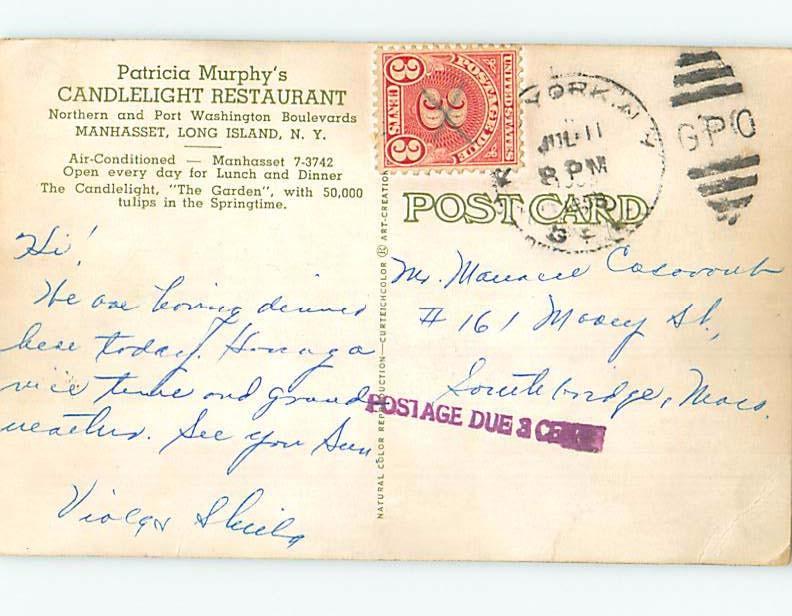 Patricia Murphy's
CANDLELIGHT RESTAURANT
Northern and Port Washington Boulevards
MANHASSET, LONG ISLAND, N. Y.
Air-Conditioned — Manhasset 7-3742
Open every day for Lunch and Dinner
The Candlelight, "The Garden", with 50,000
tulips in the Springtime.
Hi!
We are having dinner
here today. Having a
nice time and grand
weather. See you Sun
Violet & Sheila
NATURAL COLOR REPRODUCTION—CURTEICHCOLOR ® ART-CREATION
UNITED STATES
POSTAGE DUE
3 3
3 CENTS
YORK, N.Y.
JUL 11
8 PM
GPO
POST CARD
Mr. Maurice
# 161 Moory St.,
Southbridge, Mass.
POSTAGE DUE 3 CENTS